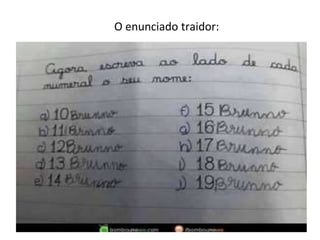 O enunciado traidor:
Agora escreva ao lado de cada
numeral o seu nome:
a) 10 Brunno
b) 11 Brunno
c) 12 Brunno
d) 13 Brunno
e) 14 Brunno
f) 15 Brunno
g) 16 Brunno
h) 17 Brunno
i) 18 Brunno
j) 19 Brunno